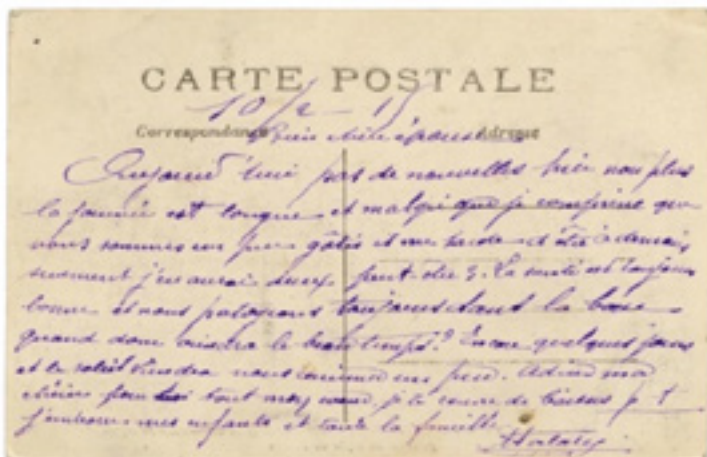 CARTE POSTALE
10/2 - 15
Correspondance Adresse
chère épouse
Aujourd'hui pas de nouvelles hier non plus
la journée est longue et malgré que je comprime que
nous sommes un peu gâtés et me tarde d'être à demain
surement j'en aurai deux peut-être 3. La santé est toujours
bonne et nous patogons toujours dans la boue
quand donc viendra le beau temps? Encore quelques jours
et le soleil viendra nous un peu. Adieu ma
chérie pour toi tout mon je te couvre de baisers p. t
J'embrasse mes enfants et toute la famille